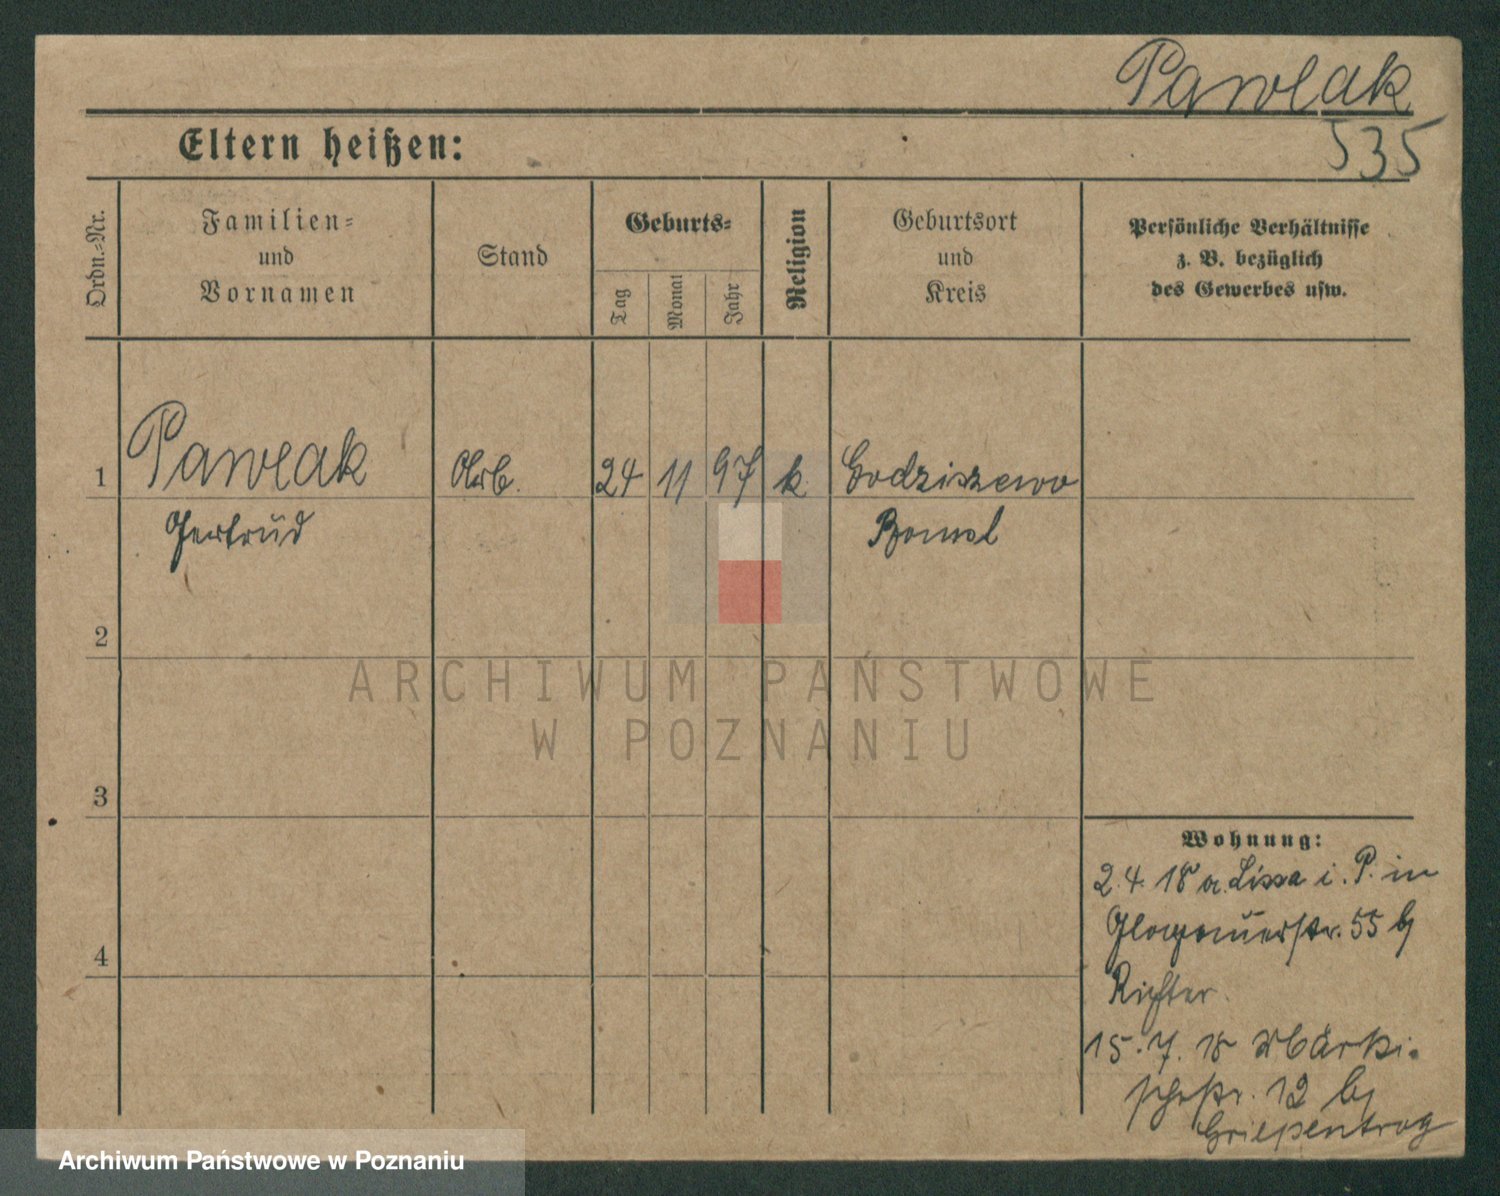 Pawlak
535
Eltern heißen:
Ordn.-Nr.
Familien-
und
Vornamen
Stand
Geburts-
Tag
Monat
Jahr
Religion
Geburtsort
und
Kreis
Persönliche Verhältnisse
z. B. bezüglich
des Gewerbes usw.
1
Pawlak
Arb.
24
11
97
k
Godziszewo
Gertrud
Bomst
2
3
4
Wohnung:
2.4.18 a. Lissa i. P. in
Glogauerstr. 55 bj
Richter
15.7.18 Märki-
schestr. 12 bj
Griepentrog
ARCHIWUM PAŃSTWOWE
W POZNANIU
Archiwum Państwowe w Poznaniu